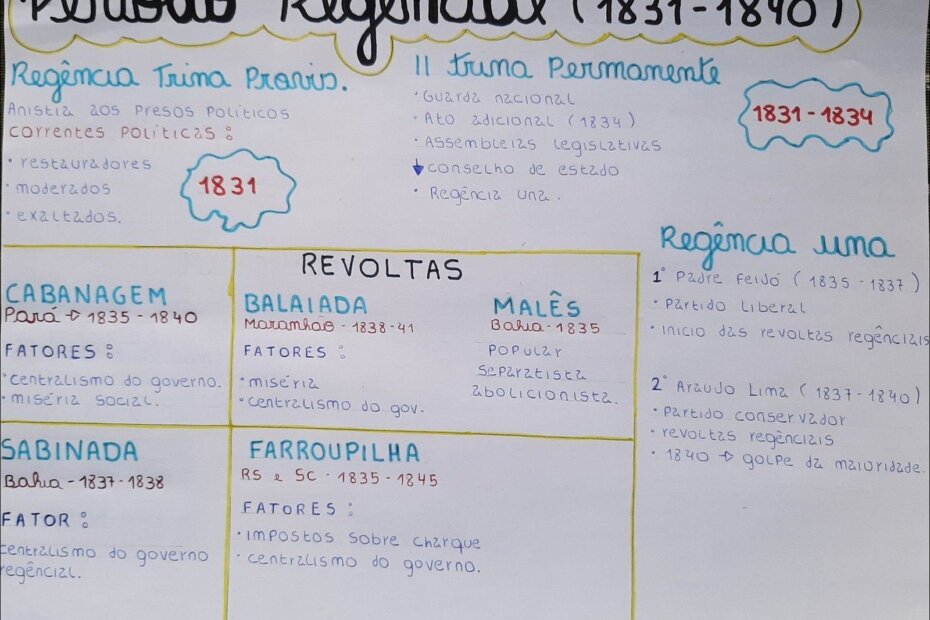 Período Regencial (1831-1840)
Regência Trina Provis.
Anistia aos presos políticos
correntes políticas:
• restauradores
• moderados
• exaltados.
1831
II trina Permanente
• Guarda nacional
• Ato adicional (1834)
• Assembleias legislativas
↓ conselho de estado
• Regência una.
1831-1834
Regência una
1° Padre Feijó (1835-1837)
• Partido Liberal
• início das revoltas regênciais
2° Araujo Lima (1837-1840)
• Partido conservador
• revoltas regênciais
• 1840 → golpe da maioridade.
REVOLTAS
CABANAGEM
Pará → 1835-1840
FATORES:
• centralismo do governo.
• miséria social.
BALAIADA
Maranhão-1838-41
FATORES:
• miséria
• centralismo do gov.
MALÊS
Bahia-1835
Popular
separatista
abolicionista.
SABINADA
Bahia-1837-1838
FATOR:
centralismo do governo
regêncial.
FARROUPILHA
RS e SC - 1835-1845
FATORES:
• impostos sobre charque
• centralismo do governo.